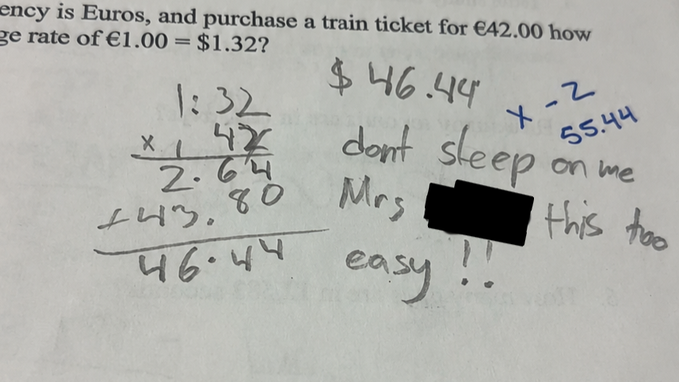 ency is Euros, and purchase a train ticket for €42.00 how
ge rate of €1.00 = $1.32?
$46.44
x -2
55.44
1.32
x 42
2.64
+43.80
46.44
dont sleep on me
Mrs this too
easy!!